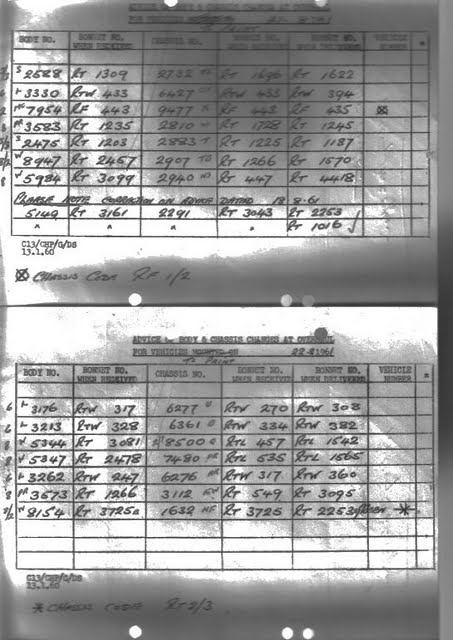 ADVICE BODY & CHASSIS CHANGES AT OVERHAUL
FOR VEHICLES 21-8-1961
To Paint
BODY NO. BONNET NO. WHEN RECEIVED CHASSIS NO. BONNET NO. WHEN RECEIVED BONNET NO. WHEN DELIVERED VEHICLE NUMBER
S 2588 RT 1309 2732 RT 1696 RT 1622
3330 RTW 433 6427 RTW 433 RTW 394
7954 RF 443 9477 RF 443 RF 435 ⊠
3583 RT 1235 2810 RT 1728 RT 1245
S 2475 RT 1203 2883 RT 1225 RT 1187
W 8947 RT 2467 2907 RT 1266 RT 1570
W 5984 RT 3099 2940 RT 447 RT 4418
PLEASE NOTE CORRECTION ON ADVICE DATED 18 8.61
5149 RT 3161 2291 RT 3043 RT 2253
" " " " RT 1016 ✓
C13/CHP/G/DS
13.1.60
⊠ CHASSIS CODE RF 1/2
ADVICE BODY & CHASSIS CHANGES AT OVERHAUL
FOR VEHICLES MOUNTED ON 22-8-1961
To Paint
BODY NO. BONNET NO. WHEN RECEIVED CHASSIS NO. BONNET NO. WHEN RECEIVED BONNET NO. WHEN DELIVERED VEHICLE NUMBER
6 3176 RTW 317 6277 RTW 270 RTW 308
6 3213 RTW 328 6361 RTW 334 RTW 382
8 W 5344 RT 3081 8500 RTL 457 RTL 1542
8 W 5347 RT 2478 7480 RTL 535 RTL 1565
6 3262 RTW 247 6276 RTW 317 RTW 360
8 3573 RT 1266 3112 RT 549 RT 3095
W 8154 RT 3725a 1632 RT 3725 RT 2253 *
C13/CHP/G/DS
13.1.60
* CHASSIS CODE RT 2/3